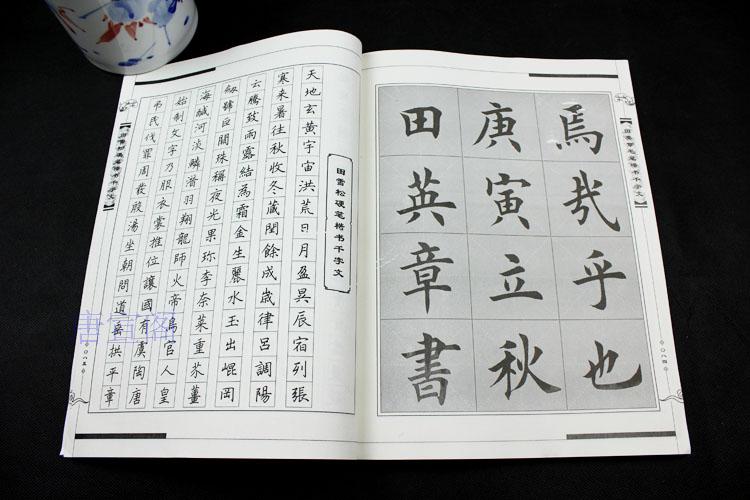 焉哉乎也
庚寅立秋
田英章書
【田英章毛笔楷书千字文】
〇八四
田雪松硬笔楷书千字文
天地玄黄宇宙洪荒日月盈昃辰宿列張
寒来暑往秋收冬藏閏餘成歲律呂調陽
云騰致雨露結為霜金生麗水玉出崐岡
劔號巨闕珠稱夜光果珎李柰菜重芥薑
海鹹河淡鱗潛羽翔龍師火帝鳥官人皇
始制文字乃服衣裳推位讓國有虞陶唐
弔民伐罪周發殷湯坐朝問道垂拱平章
【田雪松硬笔楷书千字文】
〇八五
書宣閣